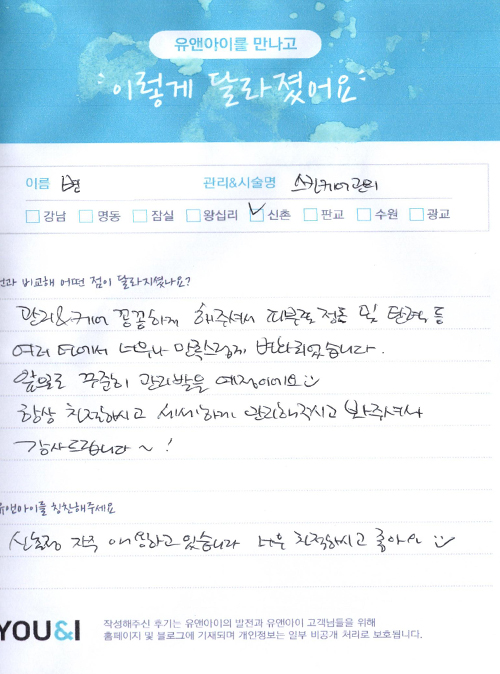 유앤아이를 만나고
이렇게 달라졌어요
이름 관리&시술명 스킨케어관리
강남 명동 잠실 왕십리 신촌 판교 수원 광교
전과 비교해 어떤 점이 달라지셨나요?
관리&케어 꼼꼼하게 해주셔서 피부결 정돈 및 탄력 등
여러 면에서 너무나 만족스럽게 변화되었습니다.
앞으로 꾸준히 관리받을 예정이에요
항상 친절하시고 세세하게 관리해주시고 봐주셔서
감사드립니다~!
유앤아이를 칭찬해주세요
신촌점 자주 애용하고 있습니다 너무 친절하시고 좋아요
YOU&I
작성해주신 후기는 유앤아이의 발전과 유앤아이 고객님들을 위해
홈페이지 및 블로그에 기재되며 개인정보는 일부 비공개 처리로 보호됩니다.